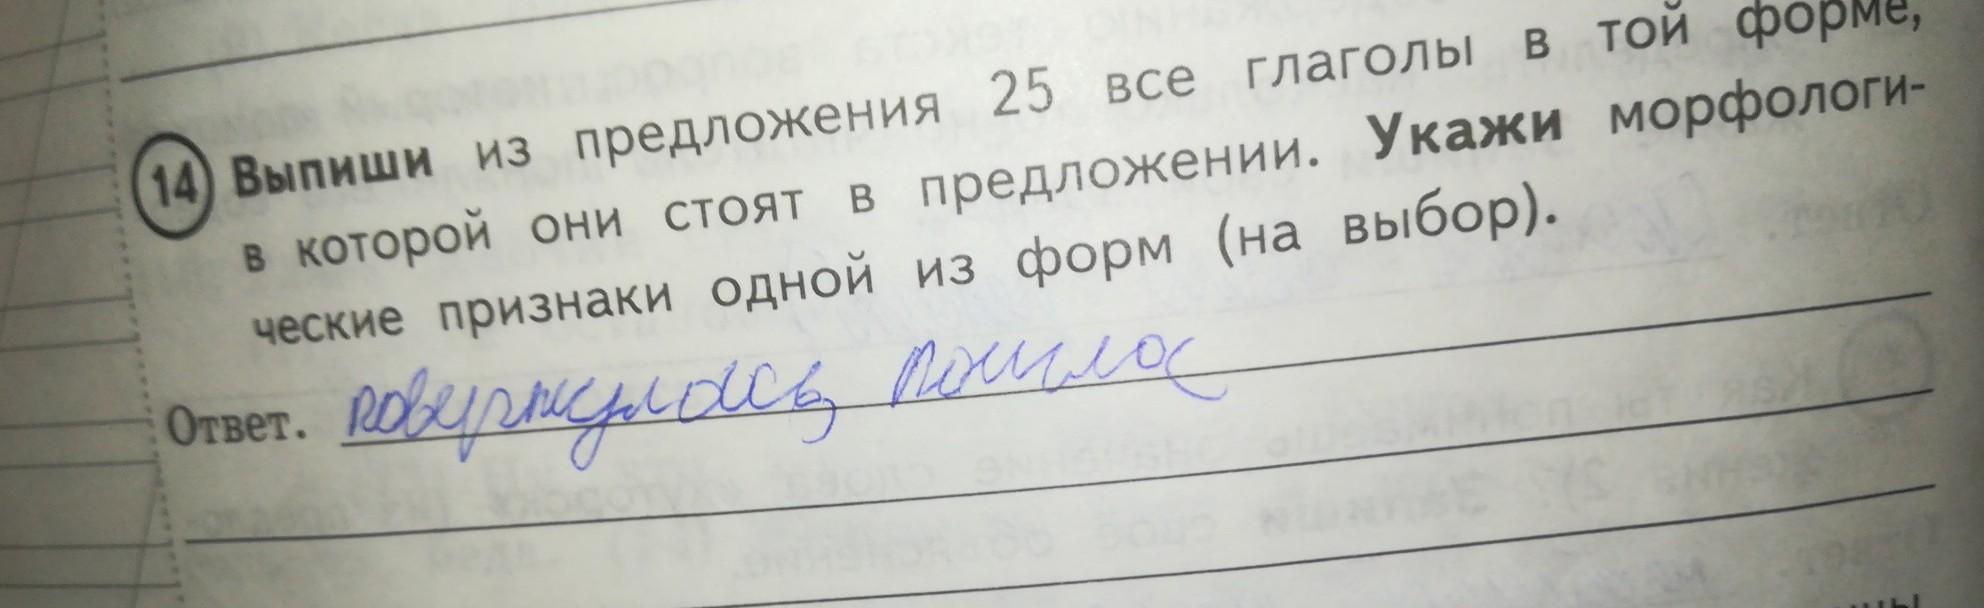 14 Выпиши из предложения 25 все глаголы в той форме,
в которой они стоят в предложении. Укажи морфологи-
ческие признаки одной из форм (на выбор).
Ответ. повернулась, пошла